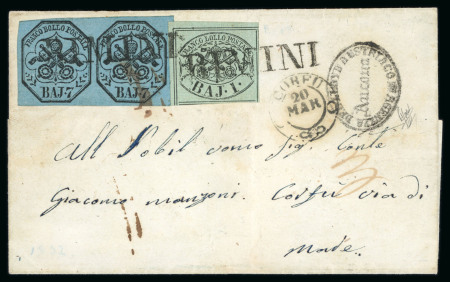 FRANCO BOLLO POSTALE FRANCO BOLLO POSTALE FRANCO BOLLO POSTALE
RIMINI RIMINI
BAJ. 7. BAJ. 7. BAJ. 1.
CORFU
20
MAR
LLOYD AUSTRIACO AGENZIA
Ancona
All Nobil uomo Sig. Conte
Giacomo Manzoni. Corfù via di
Mare.